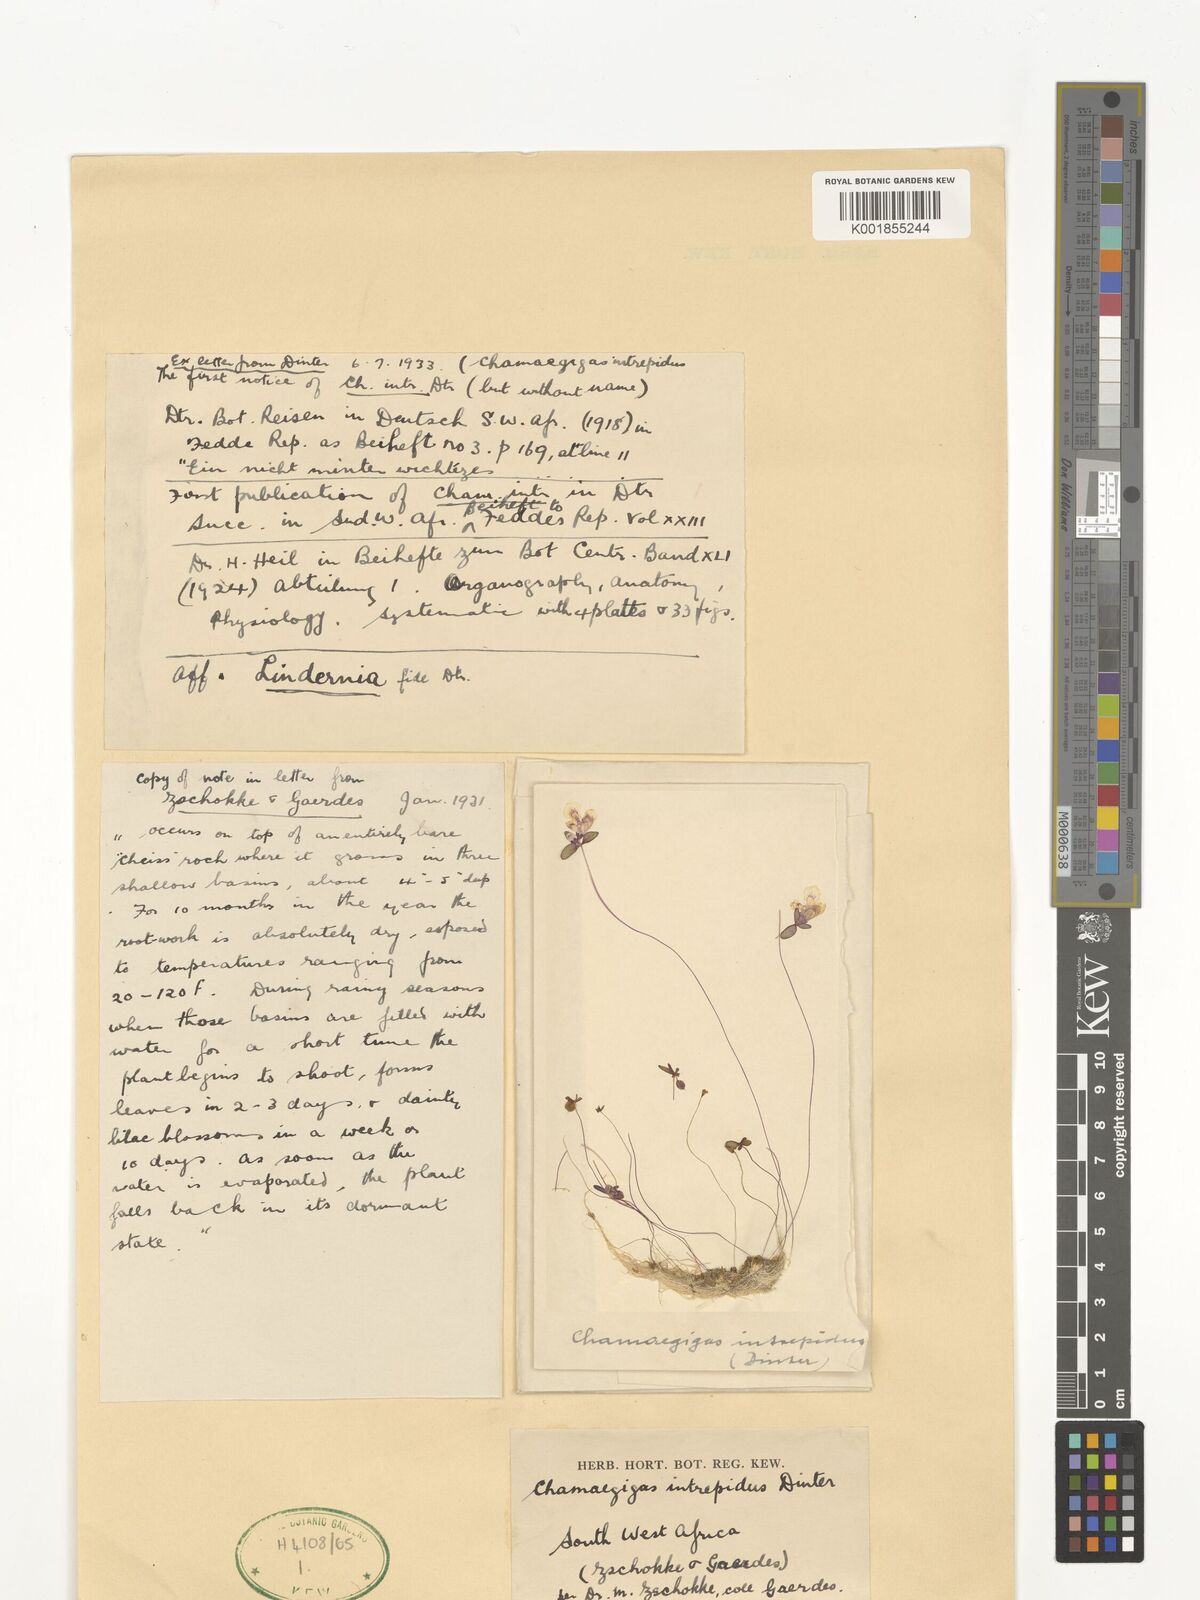 ROYAL BOTANIC GARDENS KEW
K001855244
Ex letter from Dinter 6.7.1933. (Chamaegigas intrepidus
The first notice of Ch. intr. Dtr (but without name)
Dtr. Bot. Reisen in Deutsch S.W. Afr. (1918) in
Fedde Rep. as Beiheft no 3. p 169, at line 11
"Ein nicht minter wichtizes
First publication of Cham. intr. in Dtr
Succ. in Sud.W. Afr. Beiheft to Feddes Rep. Vol XXIII
Dr. H. Heil in Beihefte zum Bot Centr. Band XLI
(1924) Abteilung 1. Organography, anatomy,
Physiology. Systematic with 4 plates & 33 figs.
Aff. Lindernia fide Dtr.
Copy of note in letter from
Zschokke & Gaerdes Jan. 1931.
" occurs on top of an entirely bare
"Cheiss" rock where it grows in three
shallow basins, about 4"-5" deep
. For 10 months in the year the
rootwork is absolutely dry, exposed
to temperatures ranging from
20-120 F. During rainy seasons
when those basins are filled with
water for a short time the
plant begins to shoot, forms
leaves in 2-3 days, & dainty
lilac blossoms in a week or
10 days. As soon as the
water is evaporated, the plant
falls back in its dormant
state. "
Chamaegigas intrepidus
(Dinter)
HERB. HORT. BOT. REG. KEW.
Chamaegigas intrepidus Dinter
South West Africa
(Zschokke & Gaerdes)
per Dr. M. Zschokke, coll Gaerdes.
BOTANIC GARDENS
H4108/65
1.
KEW
inches
Density
Don Williams
M000638
centimetres
Royal Botanic Gardens
Kew
0 1 2 3 4 5 6 7 8 9 10
cm
copyright reserved